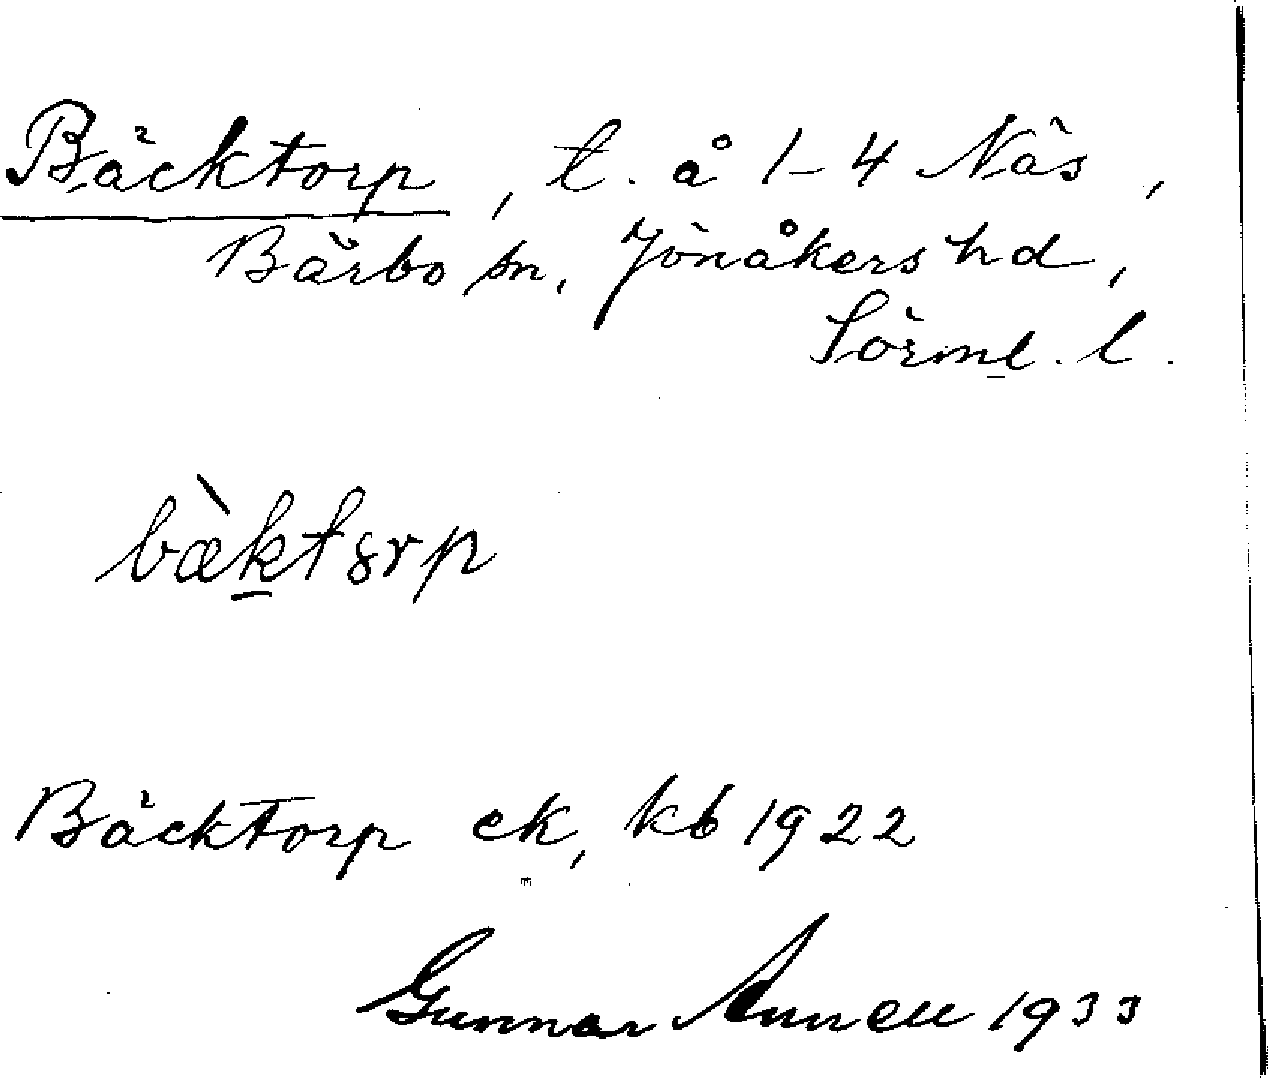 Bäcktorp, t. å 1–4 Näs,
Bärbo sn, Jönåkers hd,
Sörml. l.
bæ̀ktsrp
Bäcktorp ek, kb 1922
Gunnar Annell 1933